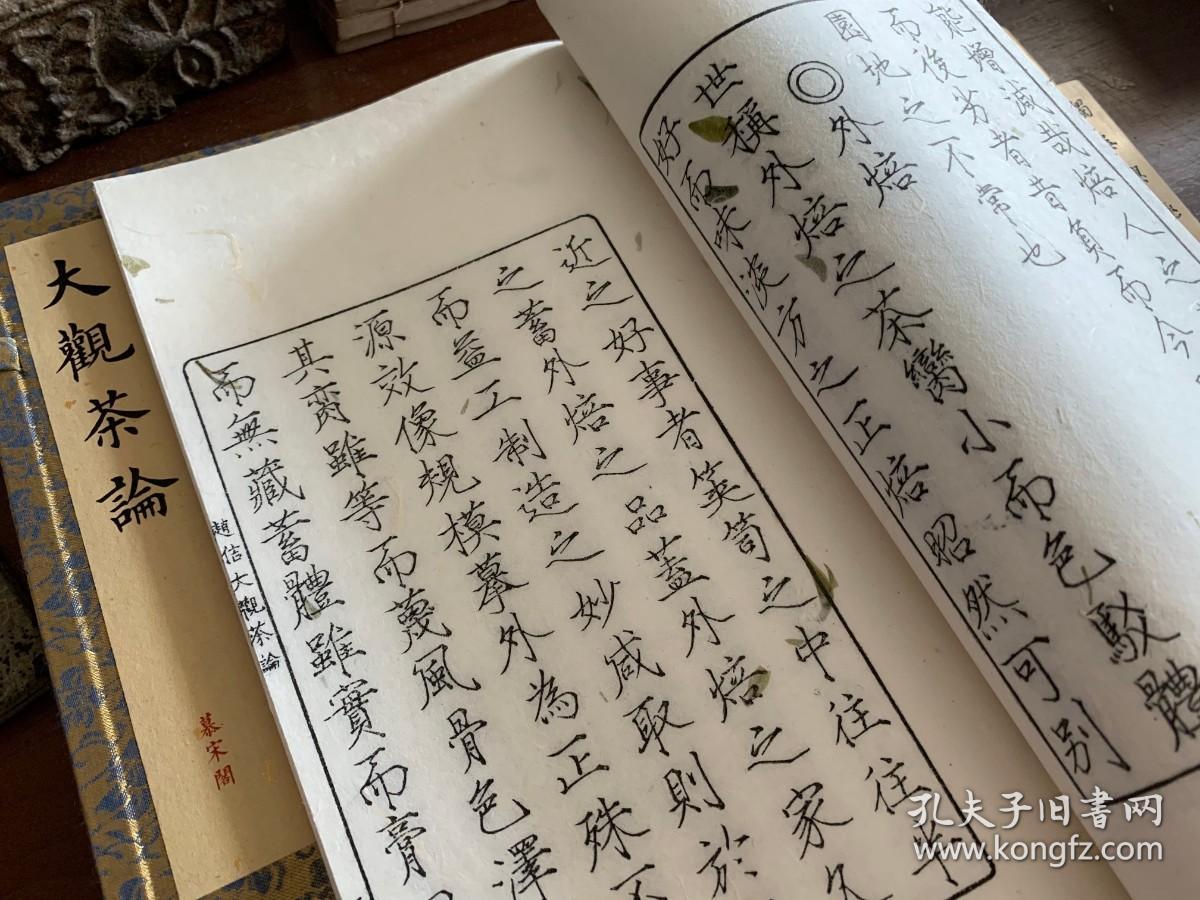 能增減哉焙人之
而後劣者昔負而今
園地之不常也
◎外焙
世稱外焙之茶臠小而色駁體
好而味淡方之正焙昭然可别
近之好事者筴笥之中往往半
之蓄外焙之品蓋外焙之家久
而益工制造之妙咸取則於
源效像規模摹外為正殊不
其脔雖等而蔑風骨色澤
而無藏蓄體雖實而膏
趙佶大觀茶論
大觀茶論
慕宋閣
孔夫子旧書网
www.kongfz.com